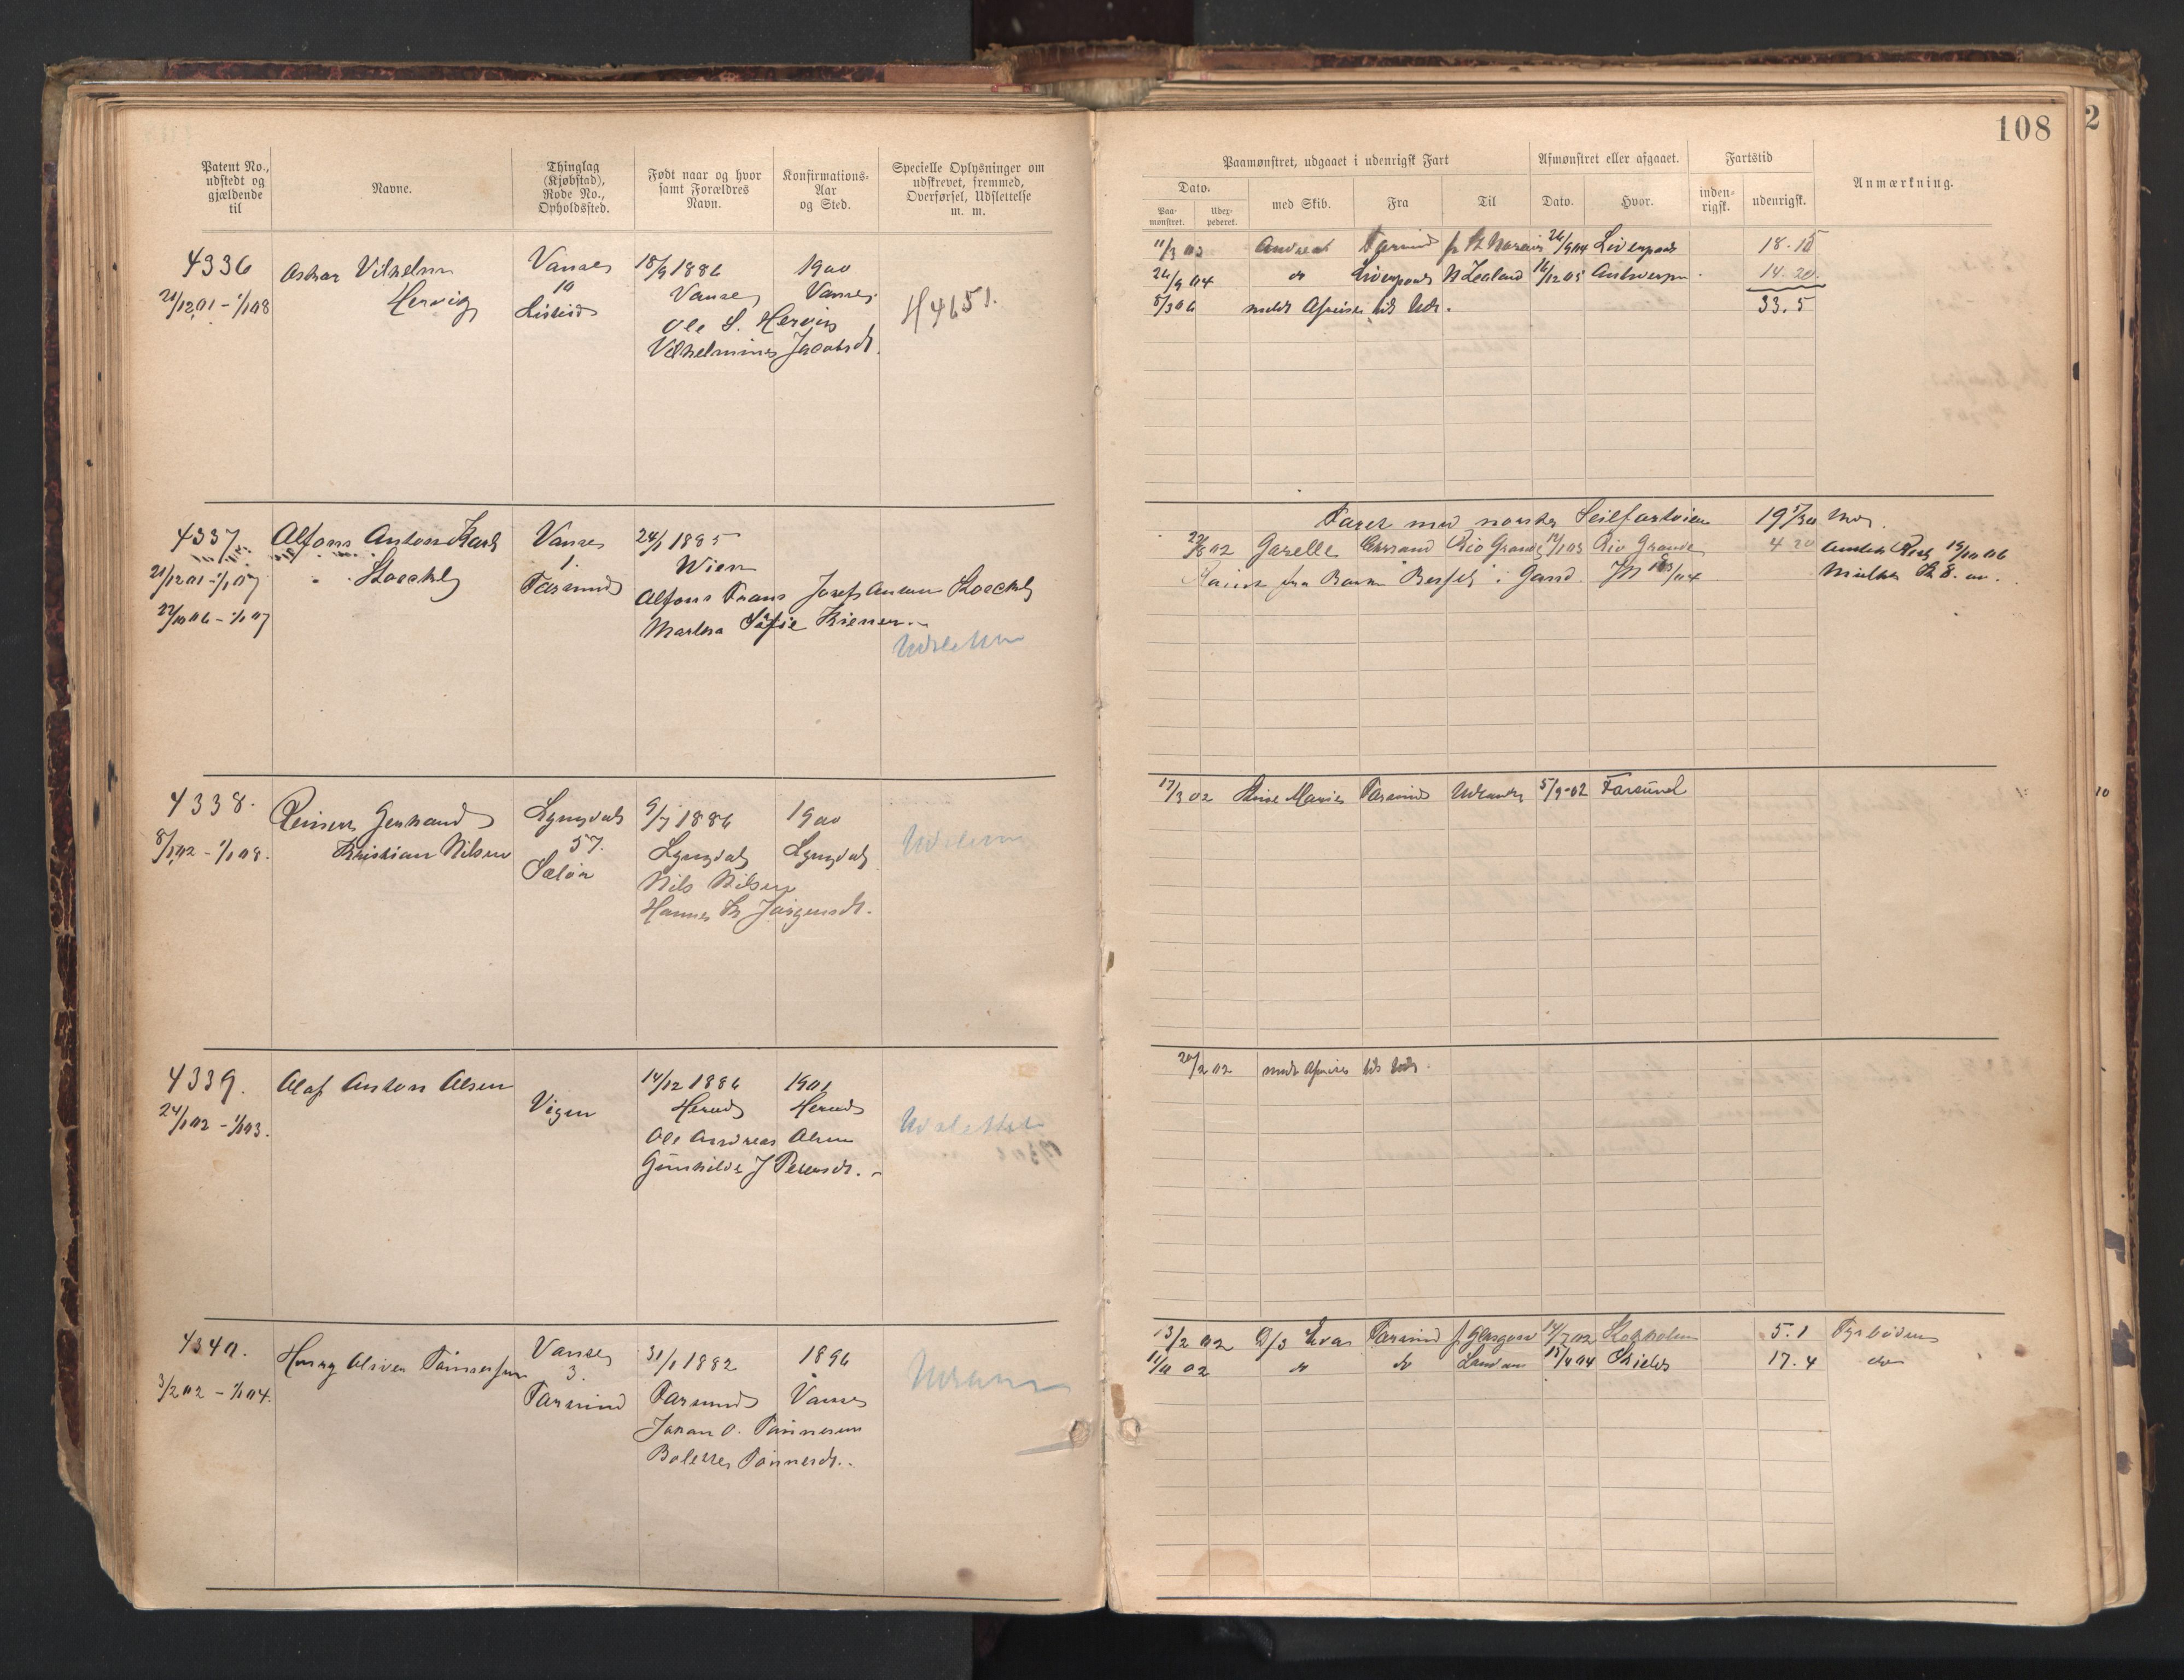 108
2
Patent No., udstedt og gjældende til
Navne.
Thinglag (Kjøbstad), Rode No., Opholdssted.
Født naar og hvor samt Forældres Navn.
Konfirmations-Aar og Sted.
Specielle Oplysninger om udskrevet, fremmed, Overførsel, Udslettelse m. m.
Paamønstret, udgaaet i udenrigsk Fart
Afmønstret eller afgaaet.
Fartstid
Anmærkning.
Dato.
Paa-mønstret.
Udex-pederet.
med Skib.
Fra
Til
Dato.
Hvor.
inden-rigsk.
udenrigsk.
4336 Oskar Vilhelm Vanse 18/9 1886 1900
21/12 01 - 1/1 08 Hervig 10 Vanse Vanse
Ole S. Hervig H4651.
Vilhelmine Jacobsdt.
11/3 03 Farsund 26/9 04 Liverpool 18.15
26/9 04 do Liverpool N Zealand 16/12 05 Antwerpen 14.20
5/3 06 meldt Afreise til Udl. 33.5
4337. Alfons Anton Karl Vanse 24/1 1885
21/12 01 - 1/1 07 Stoeckl 1. Wien
22/10 06 - 1/1 07 Farsund Alfons Frans Josef Anton Stoeckl
Martha Sofie Kiener
Udslettet
Faret med norske Seilfartøier
22/8 02 Gazelle Rio Grande Rio Grande 4 20
4338. Reinert Gerhard Lyngdal 9/7 1886 1900
8/1 02 - 1/1 08. Kristian Nilsen 57. Lyngdal Lyngdal
Sælør Nils Nilsen
Hanne K Jørgensdt.
17/3 02 Anne Marie Farsund Udlandet 5/9-02 Farsund
4339. Olaf Anton Olsen 14/12 1886 1901
24/1 02 - 1/1 03. Vigen Herad Herad
Ole Andreas Olsen Udslettet
Gunhilde J Petersdt.
20/2 02 meldt Afreise til Udl.
4340. Vanse 31/1 1882 1896
3/2 02 - 1/1 04. 3. Farsund Farsund Vanse
Johan O. Tønnesen
Bolette Tønnesdt.
13/2 02 D/S Eva Farsund f Glasgow 14/7 02 Stokholm 5.1 Fyrbøder
11/11 02 do do London 15/4 04 Shields 17.4 do
10